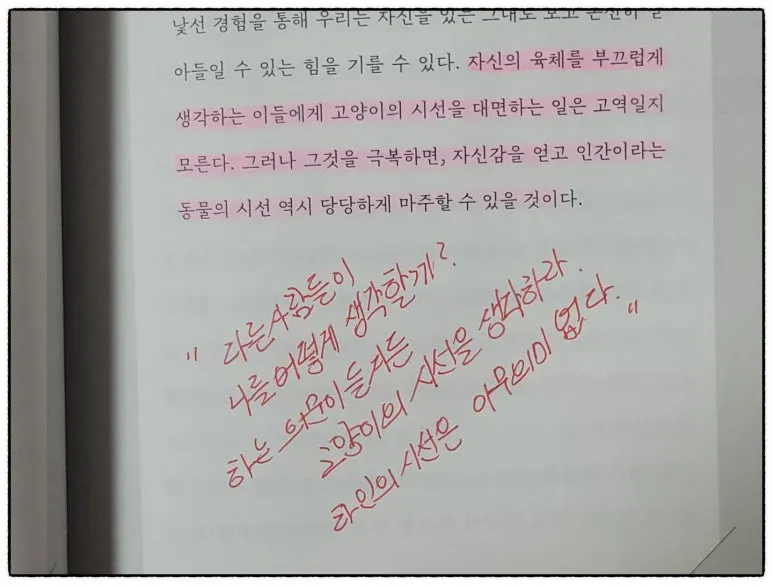 낯선 경험을 통해 우리는 자신을 있는 그대로 보고
아들일 수 있는 힘을 기를 수 있다. 자신의 육체를 부끄럽게
생각하는 이들에게 고양이의 시선을 대면하는 일은 고역일지
모른다. 그러나 그것을 극복하면, 자신감을 얻고 인간이라는
동물의 시선 역시 당당하게 마주할 수 있을 것이다.
" 다른사람들이
나를 어떻게 생각할까?
하는 의문이 들거든
고양이의 시선을 생각하라.
타인의 시선은 아무의미 없다. "